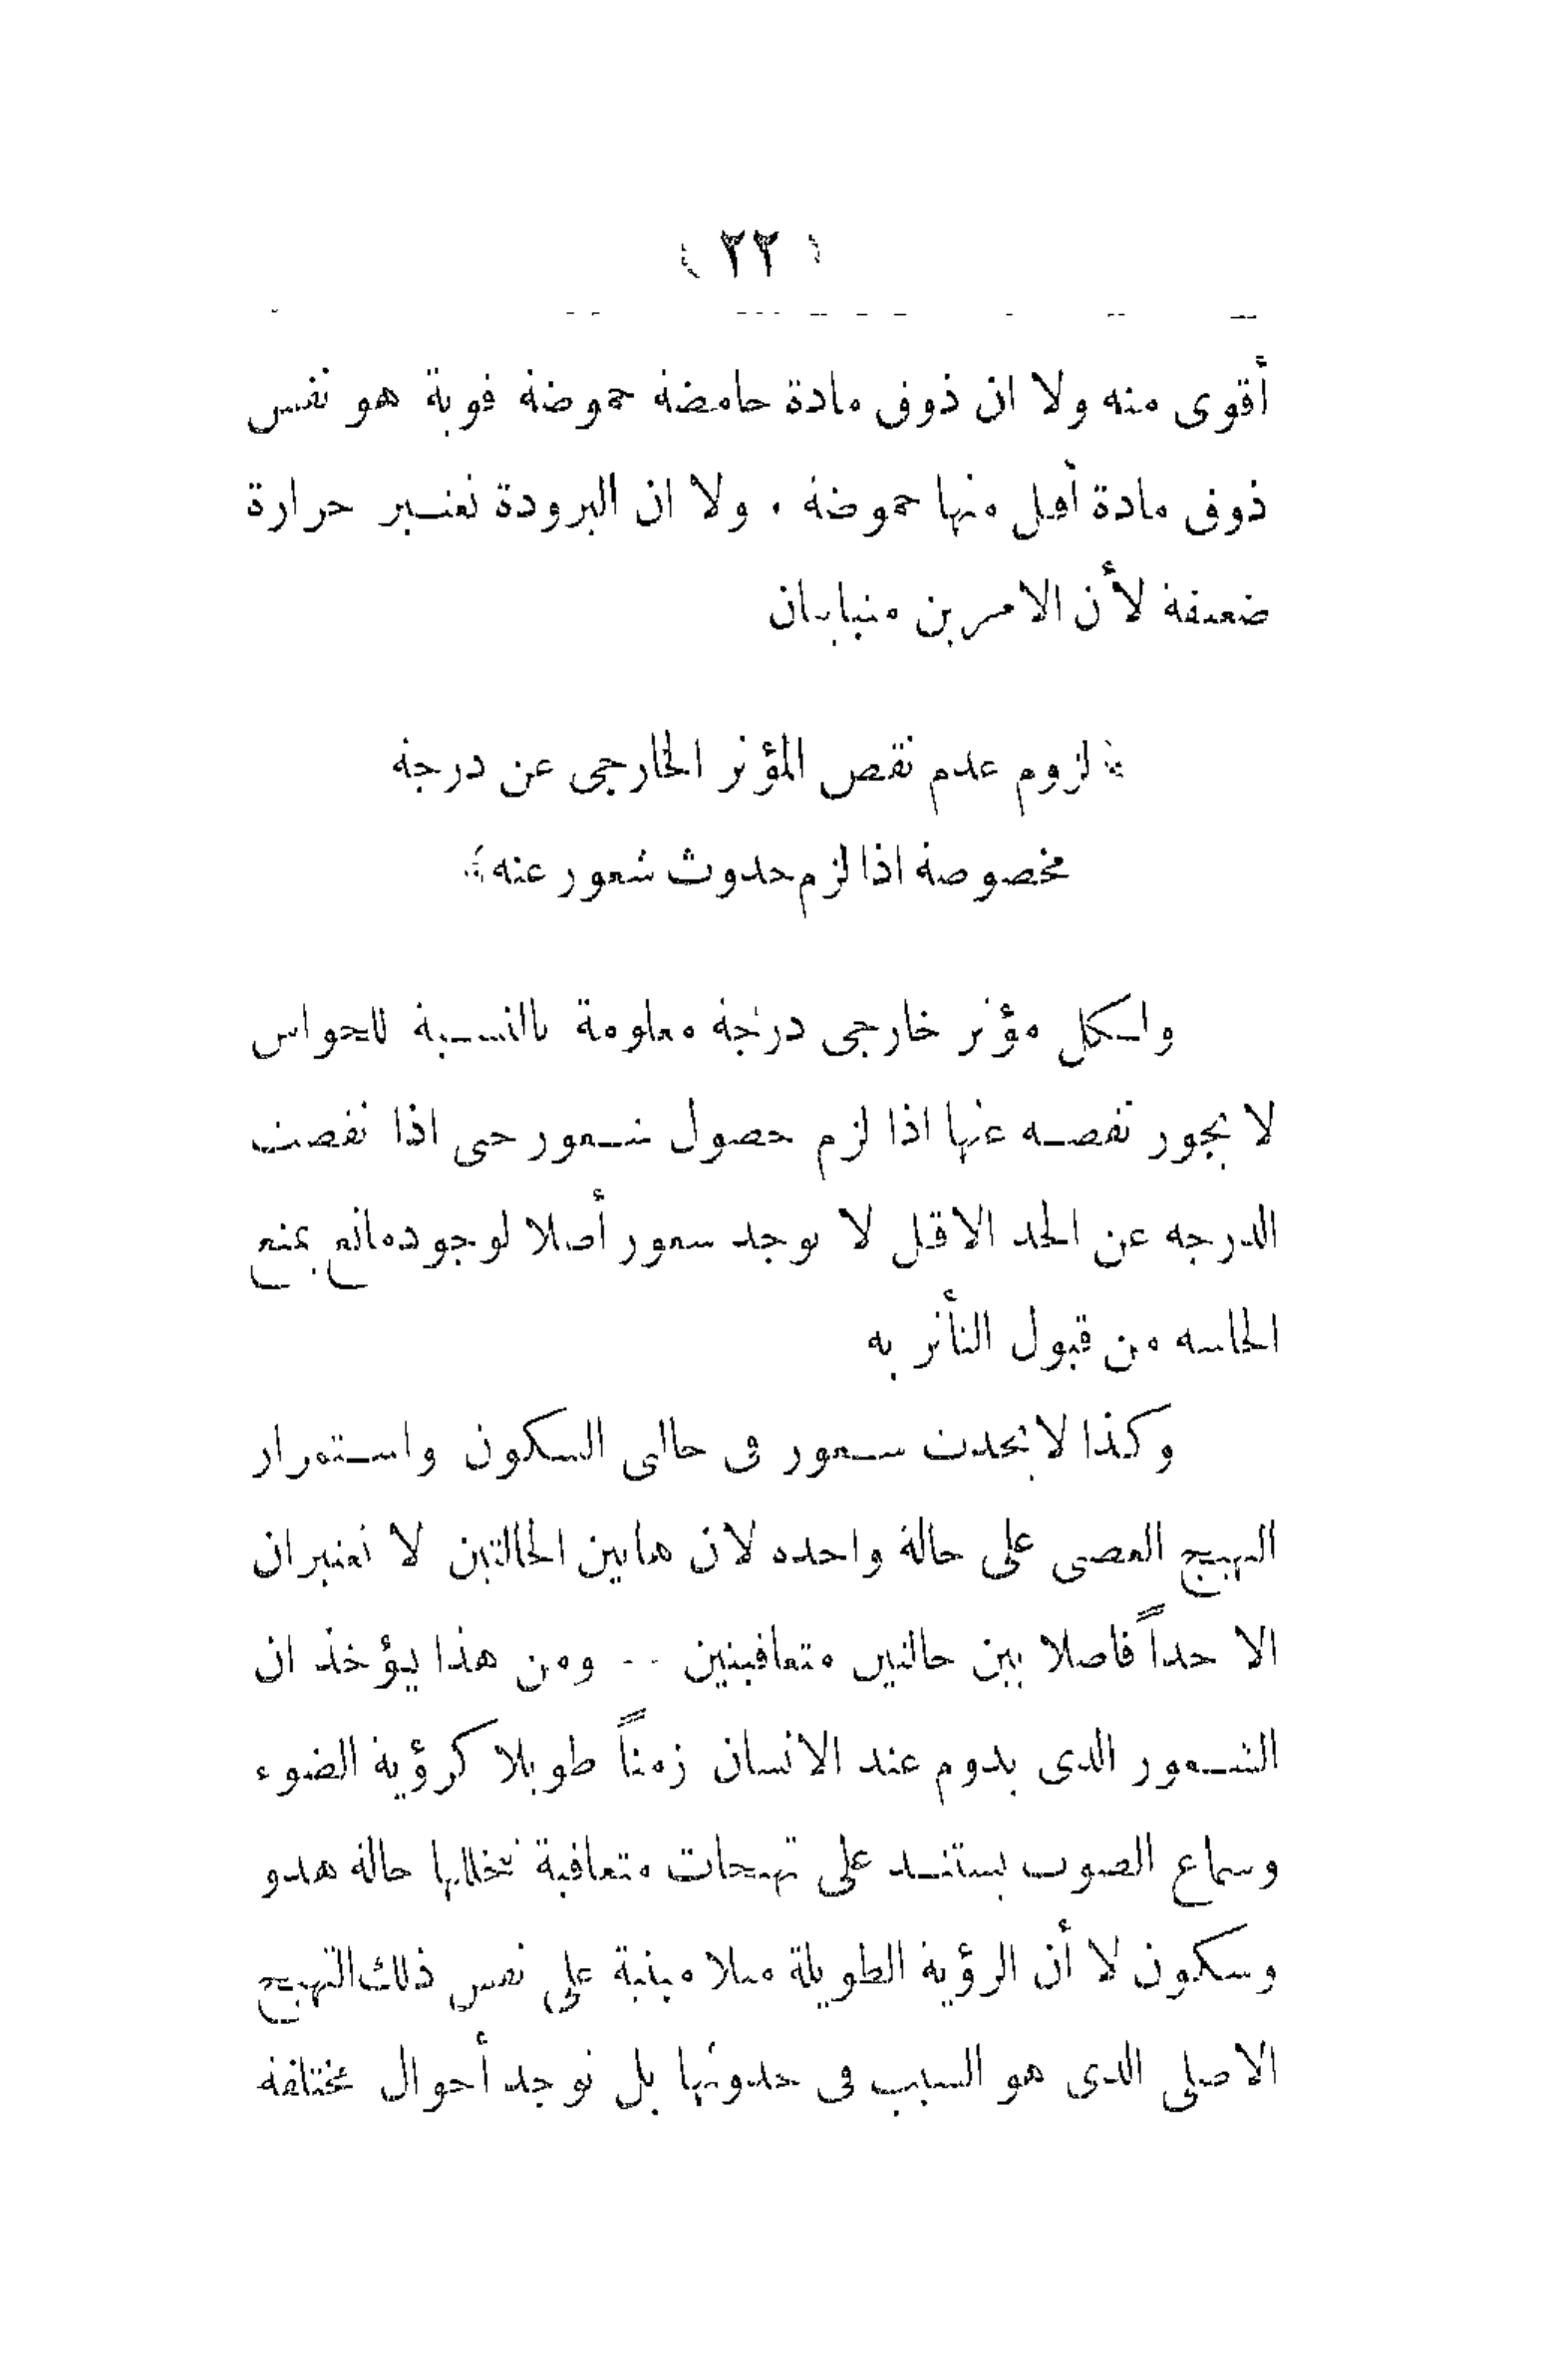 ( ٢٢ )
أقوى منه ولا ان ذوق مادة حامضة حموضة قوية هو نفس
ذوق مادة أقل منها حموضة . ولا ان البرودة تعتبر حرارة
ضعيفة لأن الامرين متباينان
﴿ لزوم عدم نقص المؤثر الخارجى عن درجة
مخصوصة اذا لزم حدوث شعور عنه ﴾
ولكل مؤثر خارجى درجة معلومة بالنسبة للحواس
لا يجوز نقصه عنها اذا لزم حصول شعور حتى اذا نقصت
الدرجة عن الحد الاقل لا يوجد شعور أصلا لوجود مانع يمنع
الحاسة من قبول التأثر به
وكذا لا يحدث شعور فى حالتى السكون واستمرار
التهيج العصبى على حالة واحدة لان هاتين الحالتين لا تعتبران
الا حداً فاصلا بين حالتين متعاقبتين .. ومن هذا يؤخذ ان
الشعور الذى يدوم عند الانسان زمناً طويلا كرؤية الضوء
وسماع الصوت يستند على تهيجات متعاقبة تخللها حالة هدو
وسكون لا أن الرؤية الطويلة مثلا مبنية على نفس ذلك التهيج
الاصلى الذى هو السبب فى حدوثها بل توجد أحوال مختلفة